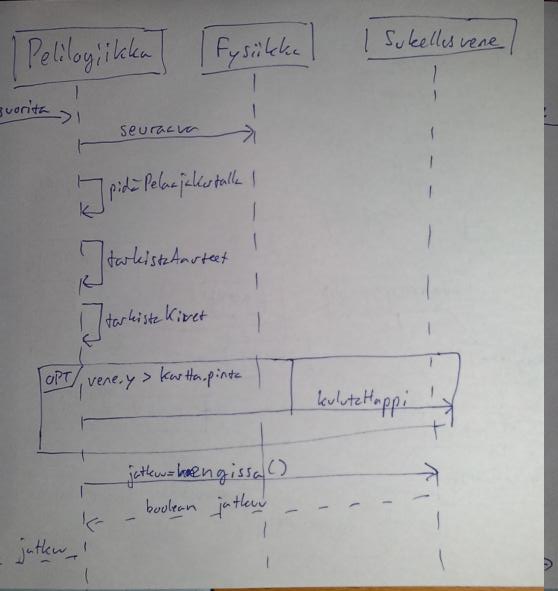 Pelilogiikka
Fysiikka
Sukellusvene
suorita
seuraava
pidäPelaajaKartalla
tarkistaAarteet
tarkistaKivet
OPT
vene.y > kartta.pinta
kulutaHappi
jatkuu=hengissa()
boolean jatkuu
jatkuu